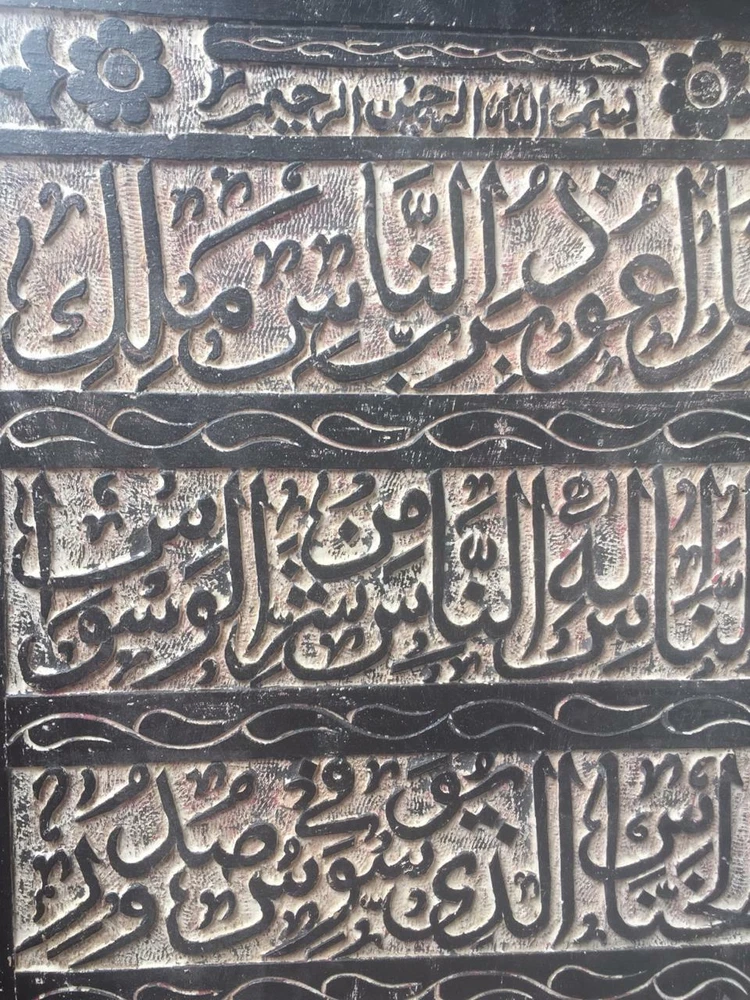 بسم الله الرحمن الرحيم
قل اعوذ برب النّاس ملك
النّاس اله النّاس من شرّ الوسواس
الخنّاس الذى يوسوس فى صدور